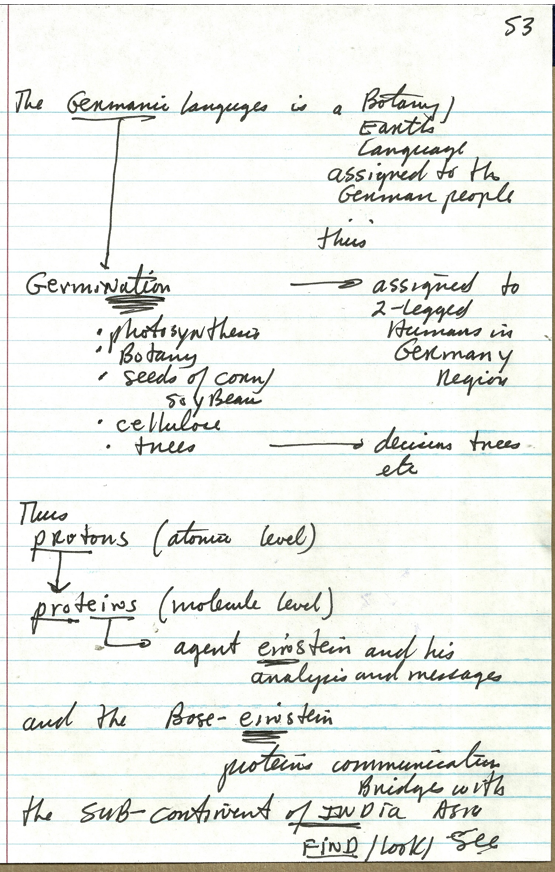 53
The Germanic languges is a Botany/
Earth
Language
assigned to th
German people
thus
Germination → assigned to
2-legged
• photosynthesis Humans in
• Botany Germany
• seeds of corn/ Region
Soy Bean
• cellulose
• trees → decisions trees
etc
Thus
protons (atomic level)
proteins (molecule level)
agent einstein and his
analysis and messages
and the Bose-einstein
proteins communication
Bridges with
the SUB-continent of INDia Asia
FIND/look/See